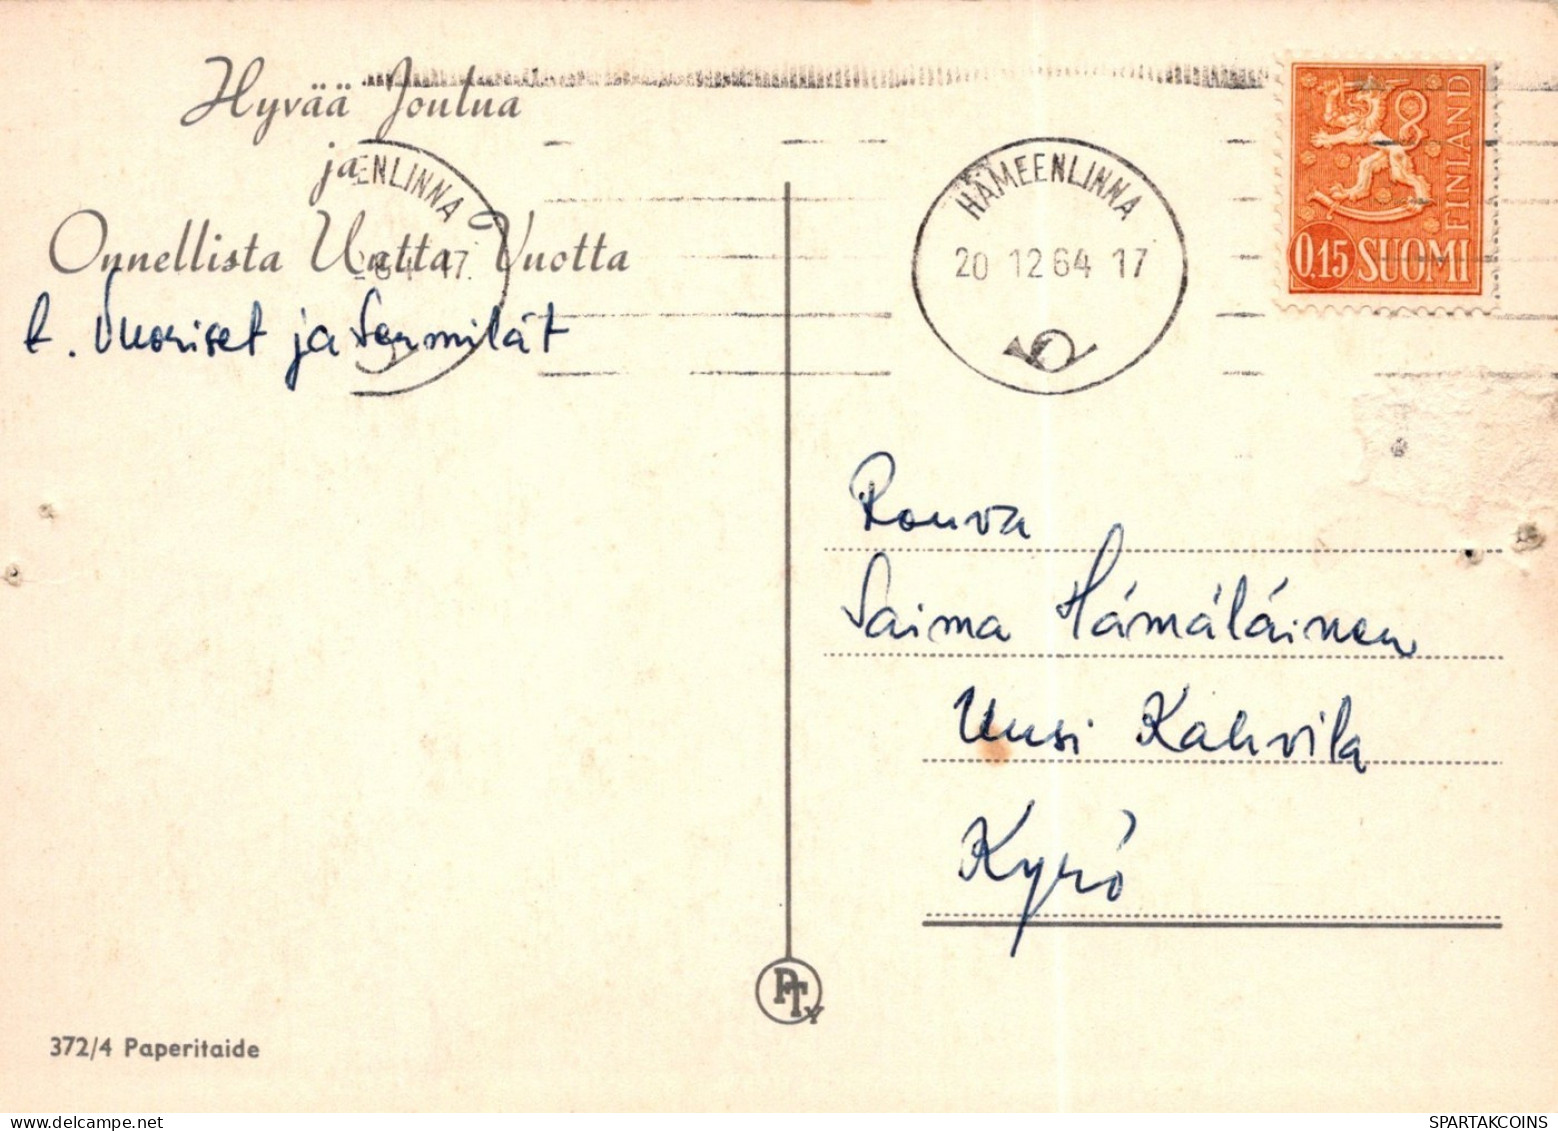 Hyvää Joulua
ja
Onnellista Uutta Vuotta
t. Vuoriset ja
ENLINNA
64 17
HÄMEENLINNA
20 12 64 17
FINLAND
0,15 SUOMI
Rouva
Saima Hämäläinen
Uusi Kahvila
Kyrö
PT
372/4 Paperitaide
SPARTAKCOINS